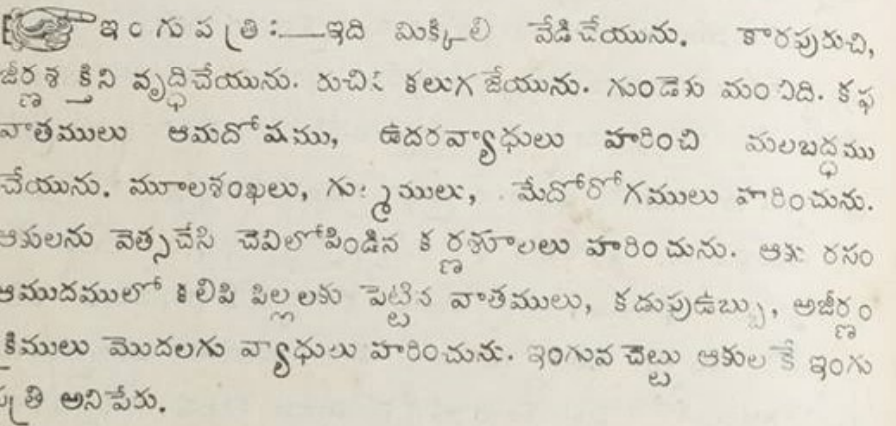 ఇంగుపత్రి :— ఇది మిక్కిలి వేడిచేయును. కారపురుచి,
జీర్ణశక్తిని వృద్ధిచేయును. రుచిని కలుగజేయును. గుండెకు మంచిది. కఫ
వాతములు ఆమదోషము, ఉదరవ్యాధులు హరించి మలబద్ధము
చేయును. మూలశంఖలు, గుల్మములు, మేదోరోగములు హరించును.
ఆకులను వెత్సచేసి చెవిలోపిండిన కర్ణశూలలు హరించును. ఆకు రసం
ఆముదములో కలిపి పిల్లలకు పెట్టిన వాతములు, కడుపుఉబ్బు, అజీర్ణం
క్రిములు మొదలగు వ్యాధులు హరించును. ఇంగువ చెట్టు ఆకులకే ఇంగు
పత్రి అనిపేరు.